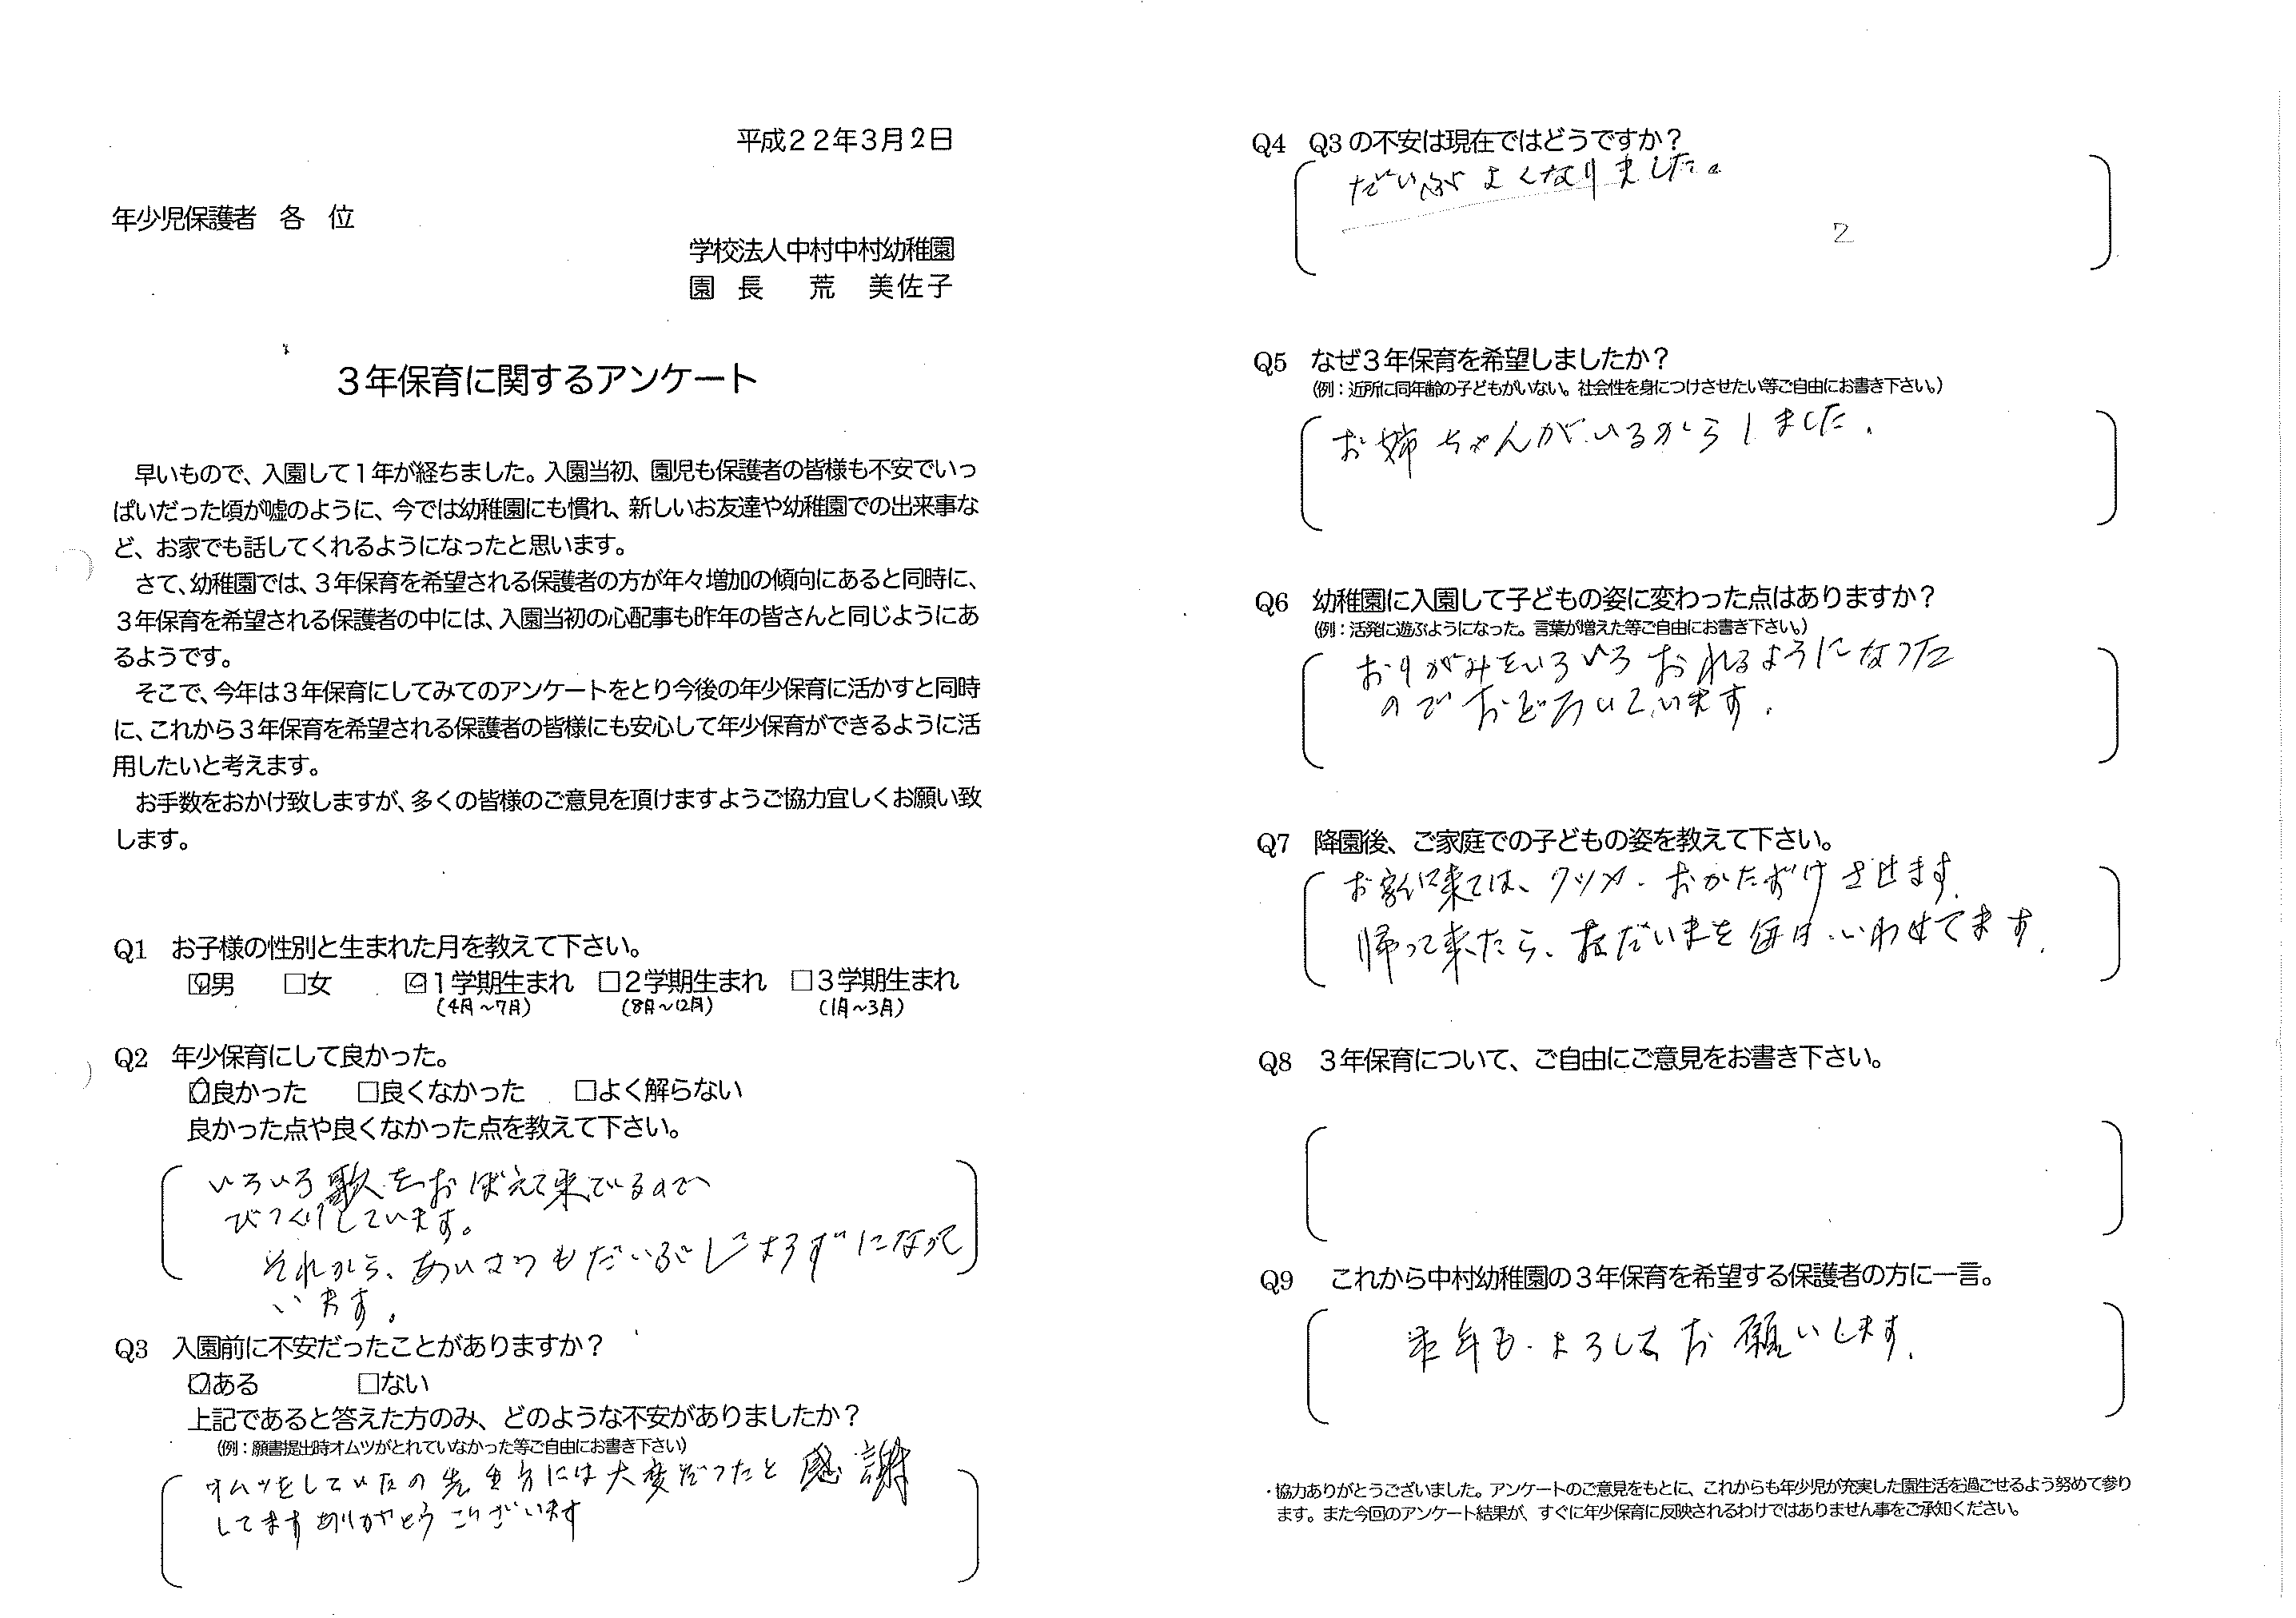 平成22年3月2日
年少児保護者 各 位
学校法人中村中村幼稚園
園 長 荒 美佐子
3年保育に関するアンケート
早いもので、入園して1年が経ちました。入園当初、園児も保護者の皆様も不安でいっ
ぱいだった頃が嘘のように、今では幼稚園にも慣れ、新しいお友達や幼稚園での出来事な
ど、お家でも話してくれるようになったと思います。
さて、幼稚園では、3年保育を希望される保護者の方が年々増加の傾向にあると同時に、
3年保育を希望される保護者の中には、入園当初の心配事も昨年の皆さんと同じようにあ
るようです。
そこで、今年は3年保育にしてみてのアンケートをとり今後の年少保育に活かすと同時
に、これから3年保育を希望される保護者の皆様にも安心して年少保育ができるように活
用したいと考えます。
お手数をおかけ致しますが、多くの皆様のご意見を頂けますようご協力宜しくお願い致
します。
Q1 お子様の性別と生まれた月を教えて下さい。
☑男 □女 ☑1学期生まれ □2学期生まれ □3学期生まれ
(4月~7月) (8月~12月) (1月~3月)
Q2 年少保育にして良かった。
☑良かった □良くなかった □よく解らない
良かった点や良くなかった点を教えて下さい。
いろいろ歌をおぼえて来ているので
びっくりしています。
それから、あいさつもだいぶじょうずになって
います。
Q3 入園前に不安だったことがありますか?
☑ある □ない
上記であると答えた方のみ、どのような不安がありましたか?
(例:願書提出時オムツがとれていなかった等ご自由にお書き下さい)
オムツをしていたの先生方には大変だったと感謝
してますありがとうございます
Q4 Q3の不安は現在ではどうですか?
だいぶよくなりました。
2
Q5 なぜ3年保育を希望しましたか?
(例:近所に同年齢の子どもがいない。社会性を身につけさせたい等ご自由にお書き下さい。)
お姉ちゃんがいるからしました.
Q6 幼稚園に入園して子どもの姿に変わった点はありますか?
(例:活発に遊ぶようになった。言葉が増えた等ご自由にお書き下さい。)
おりがみをいろいろおれるようになった
のでおどろいています.
Q7 降園後、ご家庭での子どもの姿を教えて下さい。
お家に来ては、クツヌ・おかたずけさせます.
帰って来たら、ただいまを毎日いわせてます.
Q8 3年保育について、ご自由にご意見をお書き下さい。
Q9 これから中村幼稚園の3年保育を希望する保護者の方に一言。
来年も.よろしくお願いします.
・協力ありがとうございました。アンケートのご意見をもとに、これからも年少児が充実した園生活を過ごせるよう努めて参り
ます。また今回のアンケート結果が、すぐに年少保育に反映されるわけではありません事をご承知ください。